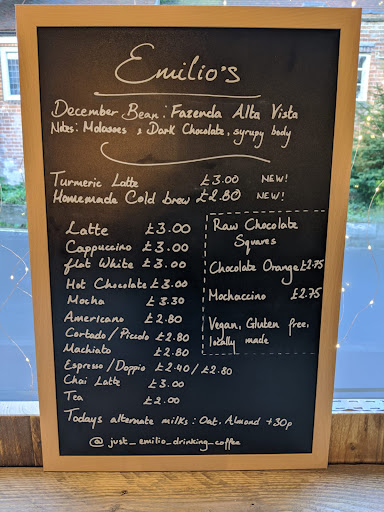 Emilio's
December Bean: Fazenda Alta Vista
Notes: Molasses & Dark Chocolate, syrupy body
Turmeric Latte £3.00 NEW!
Homemade Cold brew £2.80 NEW!
Latte £3.00
Cappuccino £3.00
flat White £3.00
Hot Chocolate £3.00
Mocha £3.30
Americano £2.80
Cortado/Piccolo £2.80
Machiato £2.80
Espresso/Doppio £2.40/£2.80
Chai Latte £3.00
Tea £2.00
Raw Chocolate
Squares
Chocolate Orange £2.75
Mochaccino £2.75
Vegan, Gluten free,
locally made
Todays alternate milks: Oat, Almond +30p
@just_emilio_drinking_coffee